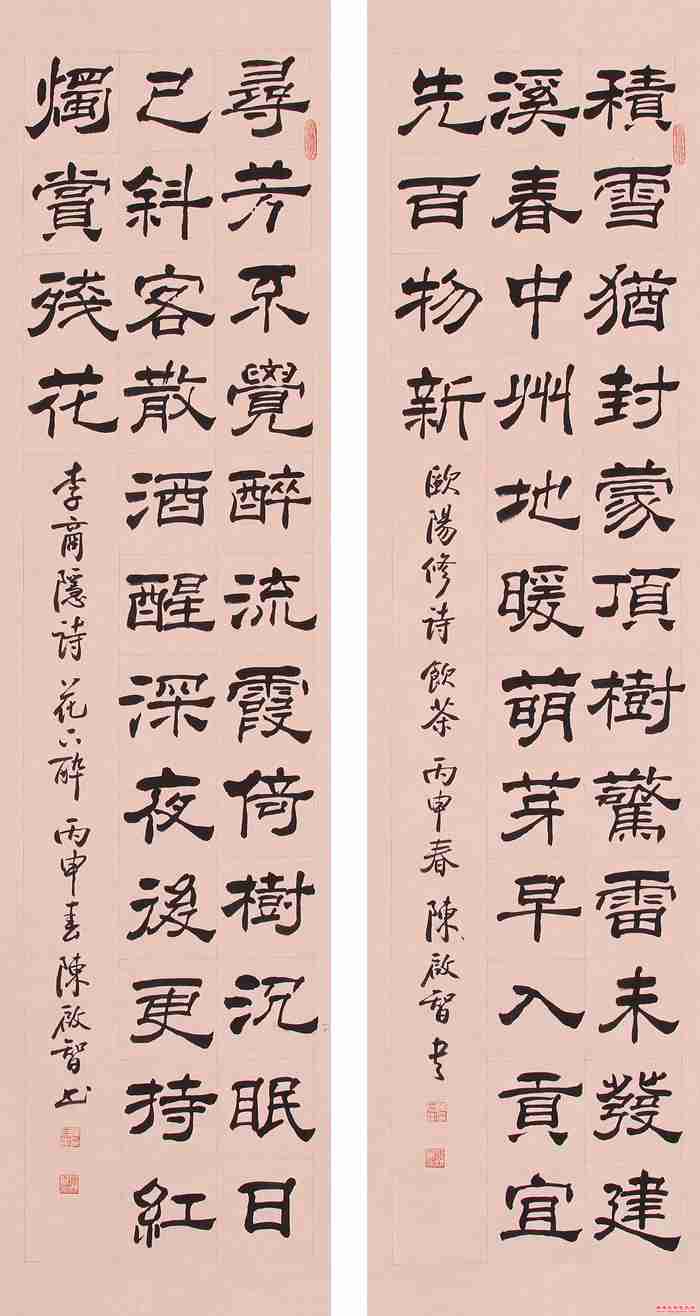 積雪猶封蒙頂樹驚雷未發建
溪春中州地暖萌芽早入貢宜
先百物新
歐陽修诗飲茶丙申春陳啟智书
尋芳不覺醉流霞倚樹沉眠日
已斜客散酒醒深夜後更持紅
燭賞殘花
李商隱诗花下醉丙申春陳啟智书